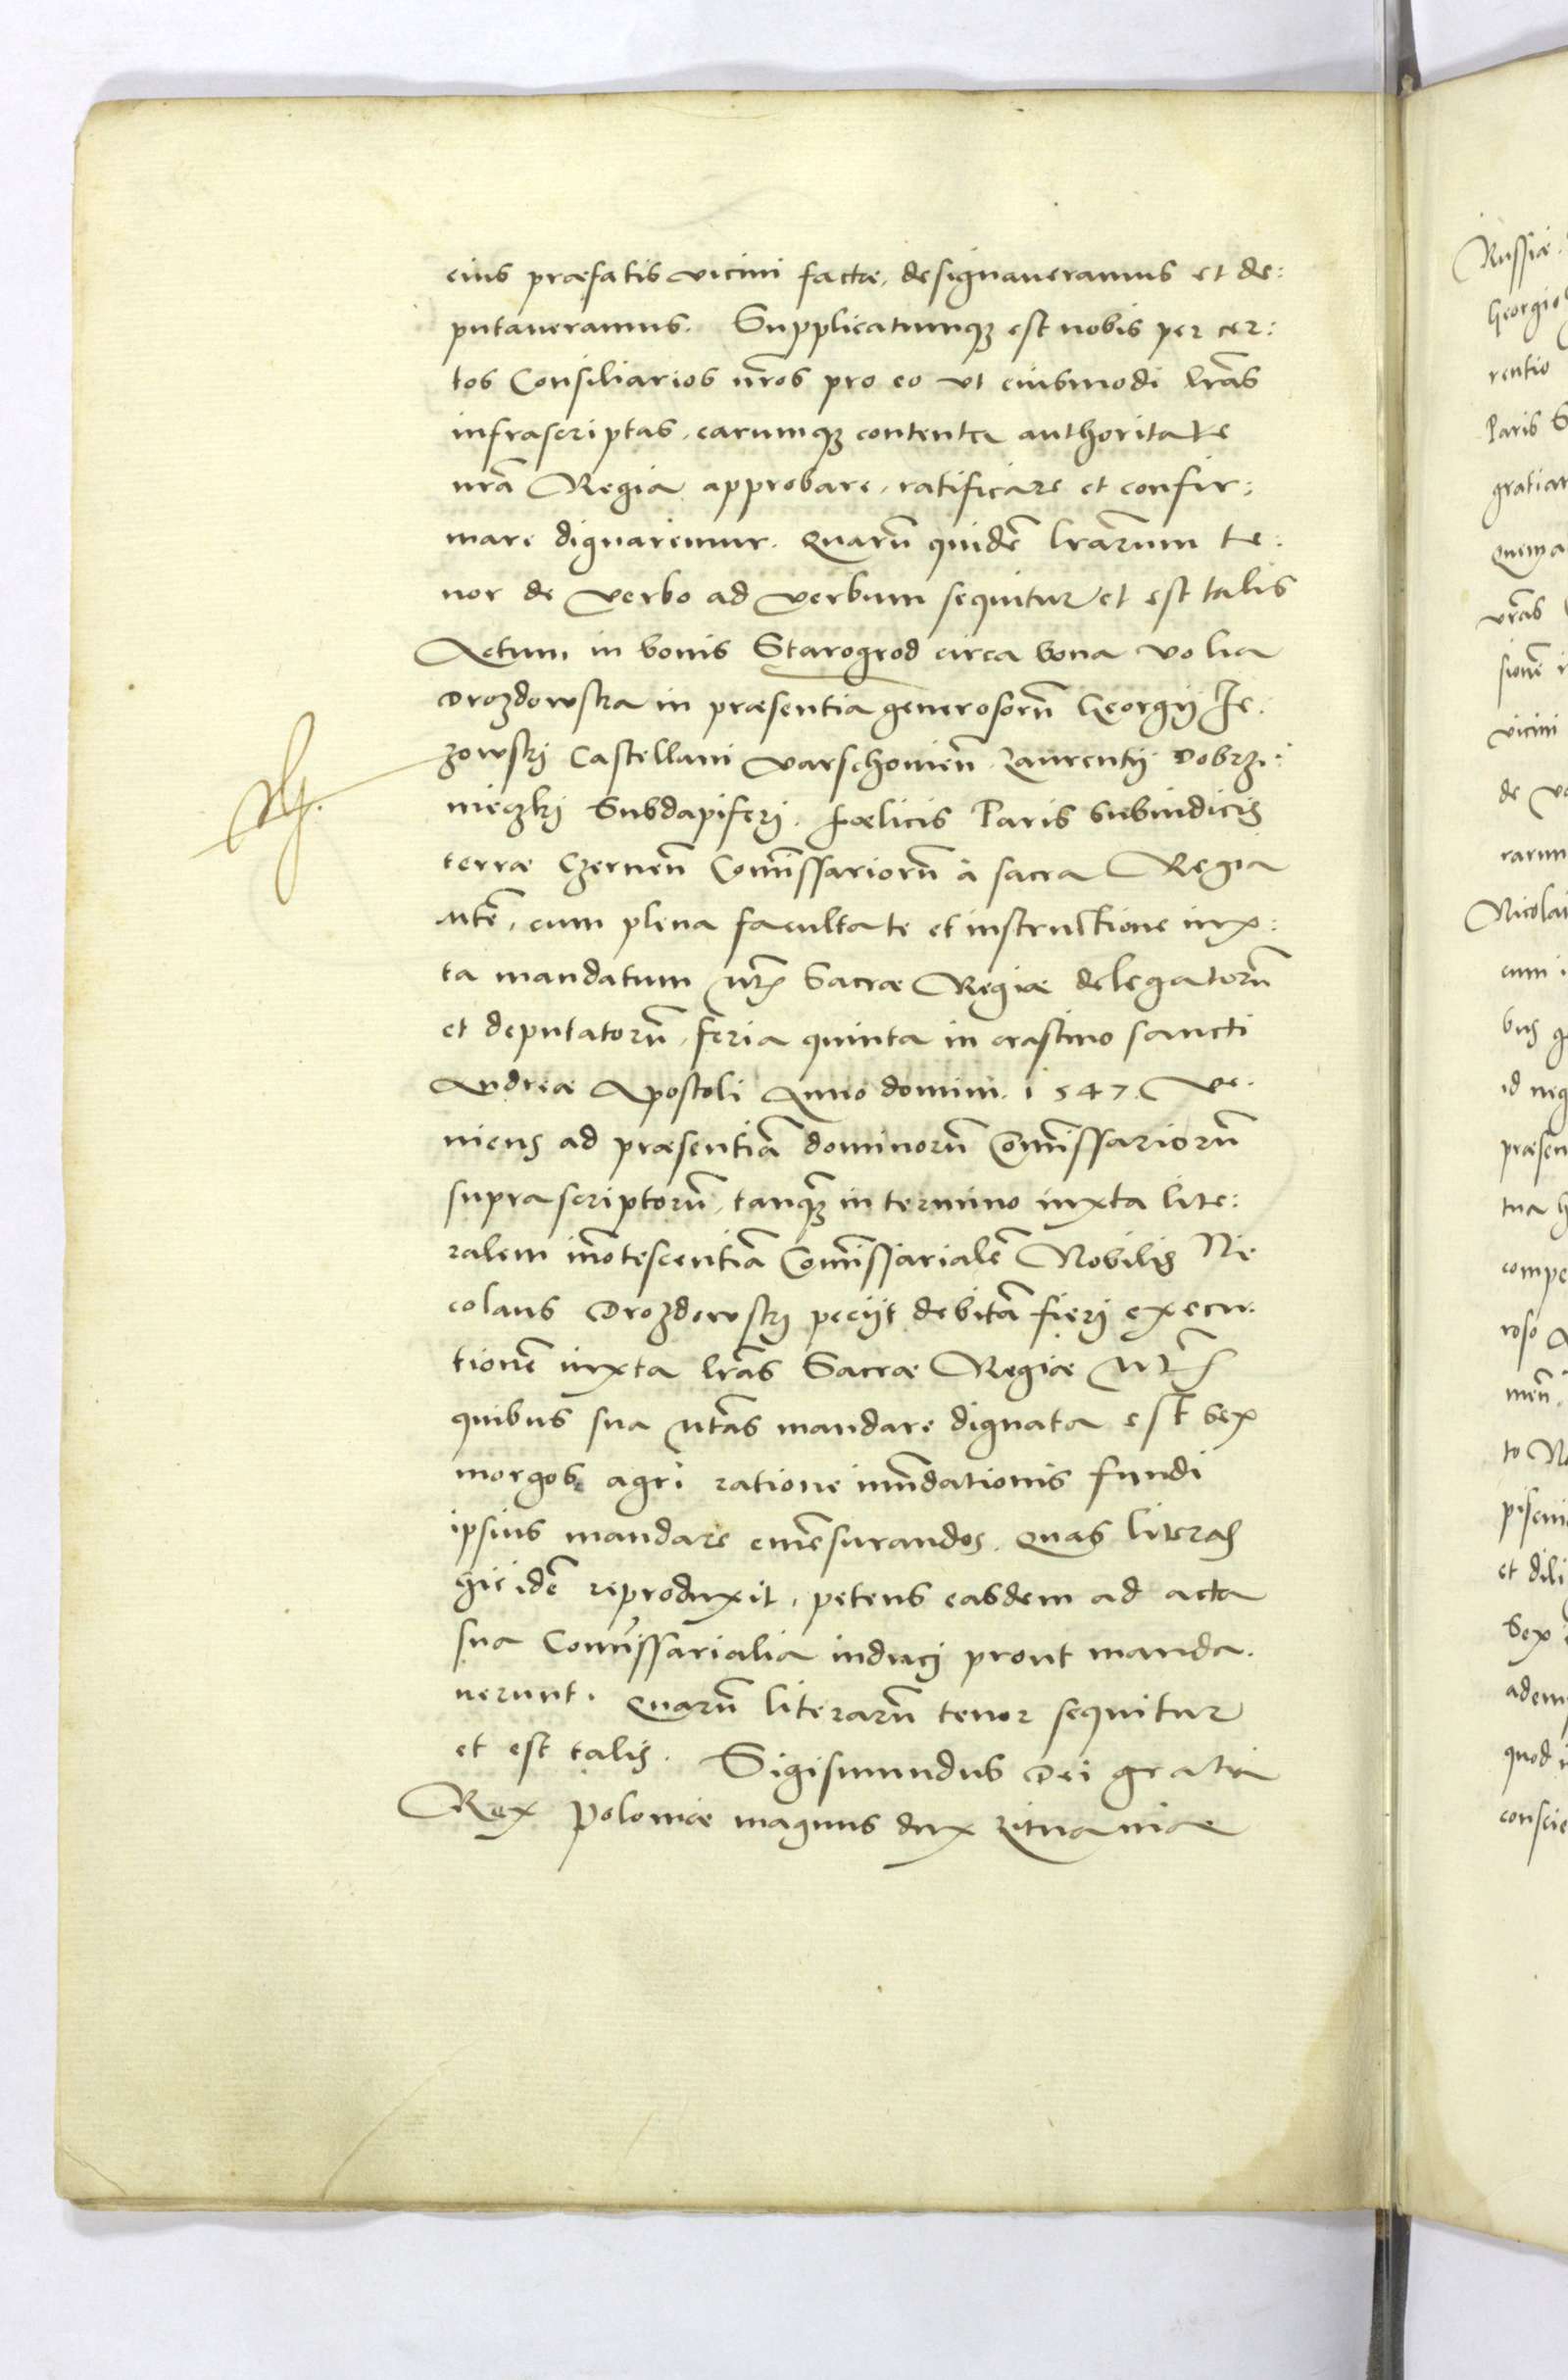 eius præfatis vicini factæ, designaueramus et de:
putaueramus. Supplicatumq3 est nobis per cer:
tos Consiliarios nr̃os pro eo vt eiusmodi lrãs
infrascriptas, earumq3 contenta authoritate
nrã Regia approbare, ratificare et confir:
mare dignaremur. Quarũ quidẽ lrãrum te:
nor de verbo ad verbum sequitur et est talis
Actum in bonis Starogrod circa bona volia
Drozdowska in præsentia generosorũ Georgij Je:
zowskj Castellani varschouieñ. Laurentij Dobrzi:
nieczkj Subdapiferj. Fœlicis Paris Subiudicis
terræ Czerneñ Com̃issariorũ à sacra Regia
Mtẽ, cum plena facultate et instructione iux:
ta mandatum Mtis Sacræ Regiæ delegatorũ
et deputatorũ, feria quinta in crastino sancti
Andreæ Apostoli Anno domini. 1547. Ve:
niens ad præsentiã dominorũ Com̃issariorũ
suprascriptorũ, tanq̃3 in termino iuxta lite:
ralem iñotescentiã Com̃issarialẽ Nobilis Ni
colaus Drozdowskj peciit debitã fierj execu:
tionẽ iuxta lrãs Sacræ Regiæ Mtis
quibus sua Mtãs mandare dignata est sex
morgos agri ratione inũdationis fundi
ipsius mandare emẽsurandos. Quas literas
hic idẽ reproduxit, petens easdem ad acta
sua Com̃issarialia inducj prout manda:
uerunt. Quarũ literarũ tenor sequitur
et est talis. Sigismundus Dei gratia
Rex Poloniæ magnus dux Lituaniæ
Russiæ
Georgio
rentio
Paris S
vrãs
sionẽ
vicini
de
rarum
Nicolai
cum
id neg
præsen
tua
compe
roso
et dili
sex
quod
conscie